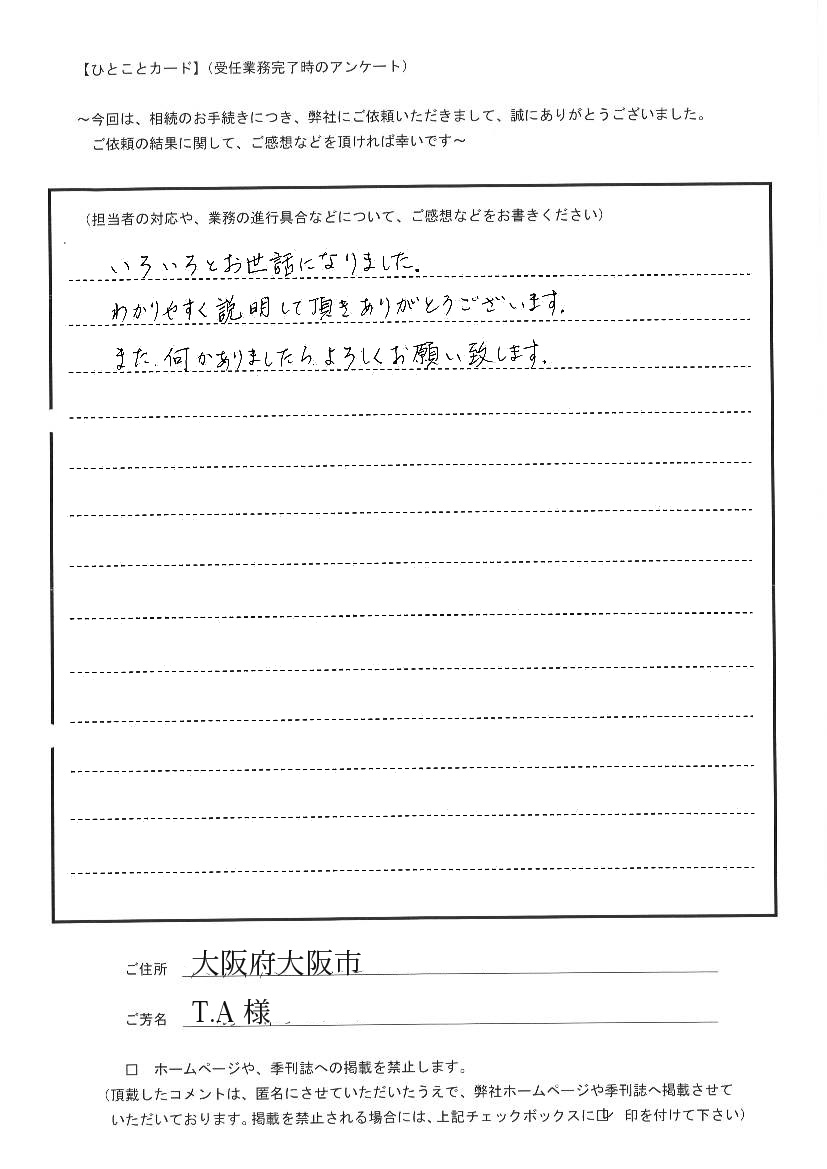 【ひとことカード】（受任業務完了時のアンケート）
～今回は、相続のお手続きにつき、弊社にご依頼いただきまして、誠にありがとうございました。
ご依頼の結果に関して、ご感想などを頂ければ幸いです～
（担当者の対応や、業務の進行具合などについて、ご感想などをお書きください）
いろいろとお世話になりました。
わかりやすく説明して頂きありがとうございます。
また、何かありましたら、よろしくお願い致します。
ご住所 大阪府大阪市
ご芳名 T.A 様
□ ホームページや、季刊誌への掲載を禁止します。
（頂戴したコメントは、匿名にさせていただいたうえで、弊社ホームページや季刊誌へ掲載させて
いただいております。掲載を禁止される場合には、上記チェックボックスに☑ 印を付けて下さい）